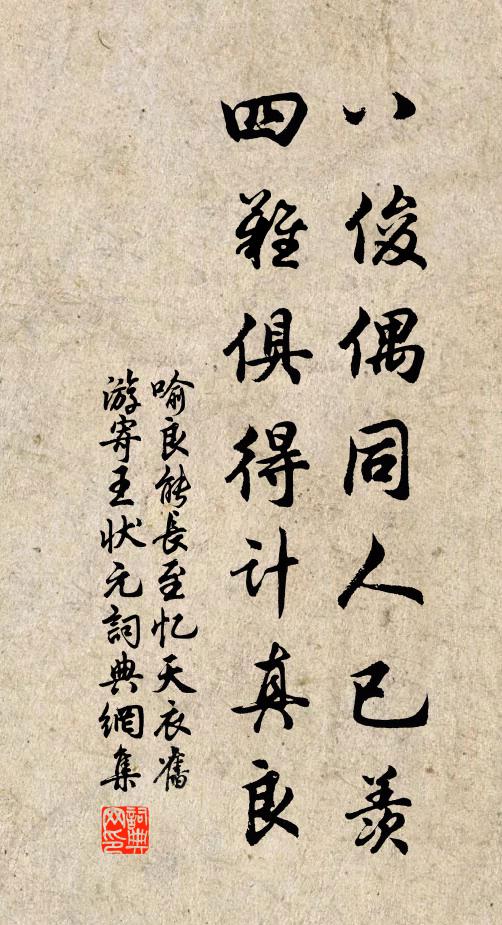 八俊偶同人已羡
四難俱得计真良
喻良能長至忆天衣舊
游寄王状元詞典網集
詞典网印